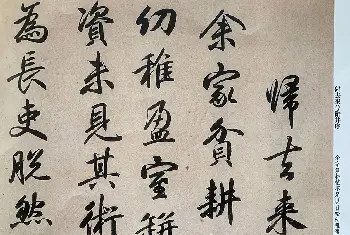 歸去来
余家貧耕
幼稚盈室缾
資未見其術
為長吏脱然